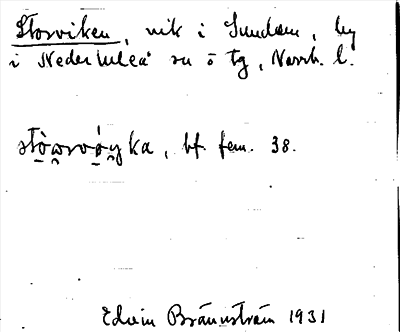 Storviken, vik i Sundom, by
i Nederluleå sn o tg, Norrb. l.
bf. fem. 38.
Edvin Brännström 1931